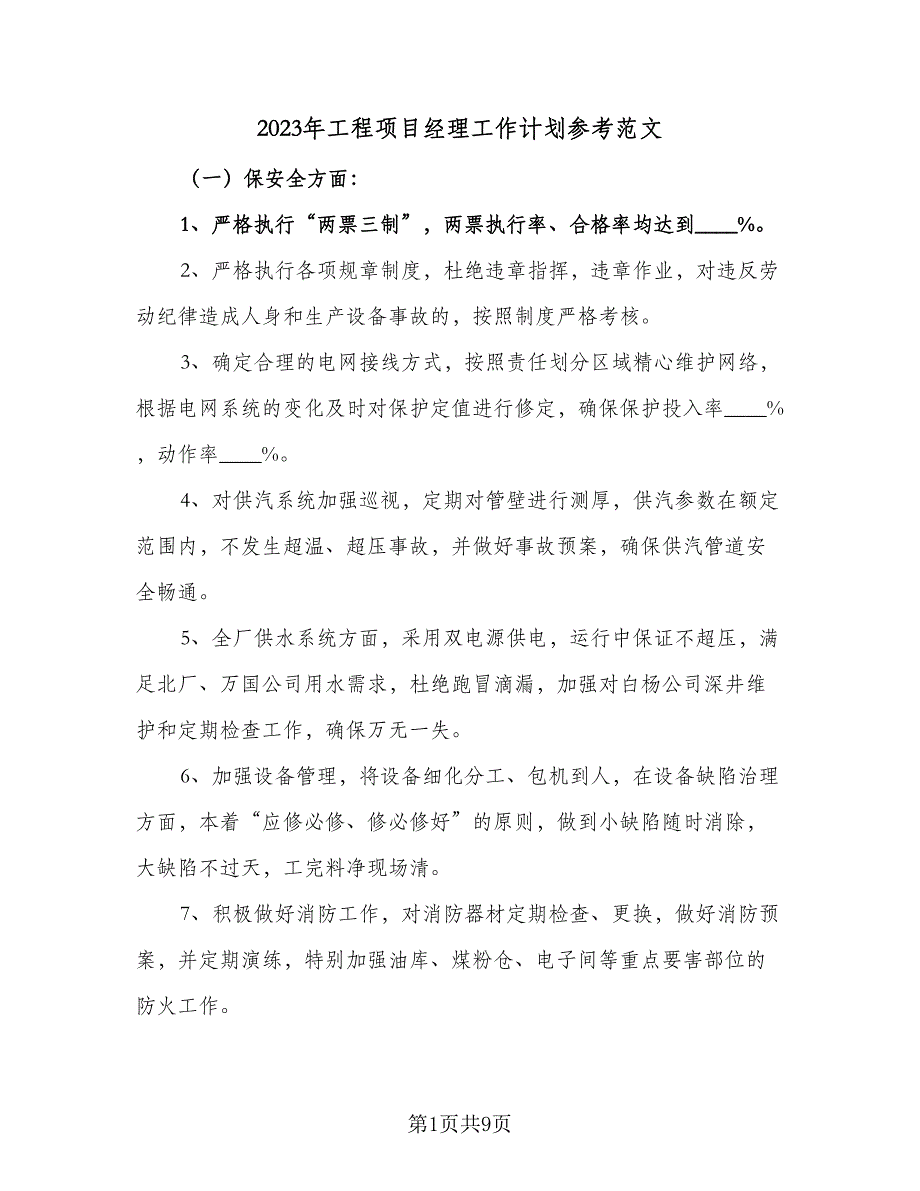 2023年工程项目经理工作计划参考范文
（一）保安全方面：
1、严格执行“两票三制”，两票执行率、合格率均达到____%。
2、严格执行各项规章制度，杜绝违章指挥，违章作业，对违反劳
动纪律造成人身和生产设备事故的，按照制度严格考核。
3、确定合理的电网接线方式，按照责任划分区域精心维护网络，
根据电网系统的变化及时对保护定值进行修定，确保保护投入率____%
，动作率____%。
4、对供汽系统加强巡视，定期对管壁进行测厚，供汽参数在额定
范围内，不发生超温、超压事故，并做好事故预案，确保供汽管道安
全畅通。
5、全厂供水系统方面，采用双电源供电，运行中保证不超压，满
足北厂、万国公司用水需求，杜绝跑冒滴漏，加强对白杨公司深井维
护和定期检查工作，确保万无一失。
6、加强设备管理，将设备细化分工、包机到人，在设备缺陷治理
方面，本着“应修必修、修必修好”的原则，做到小缺陷随时消除，
大缺陷不过天，工完料净现场清。
7、积极做好消防工作，对消防器材定期检查、更换，做好消防预
案，并定期演练，特别加强油库、煤粉仓、电子间等重点要害部位的
防火工作。
第1页共9页